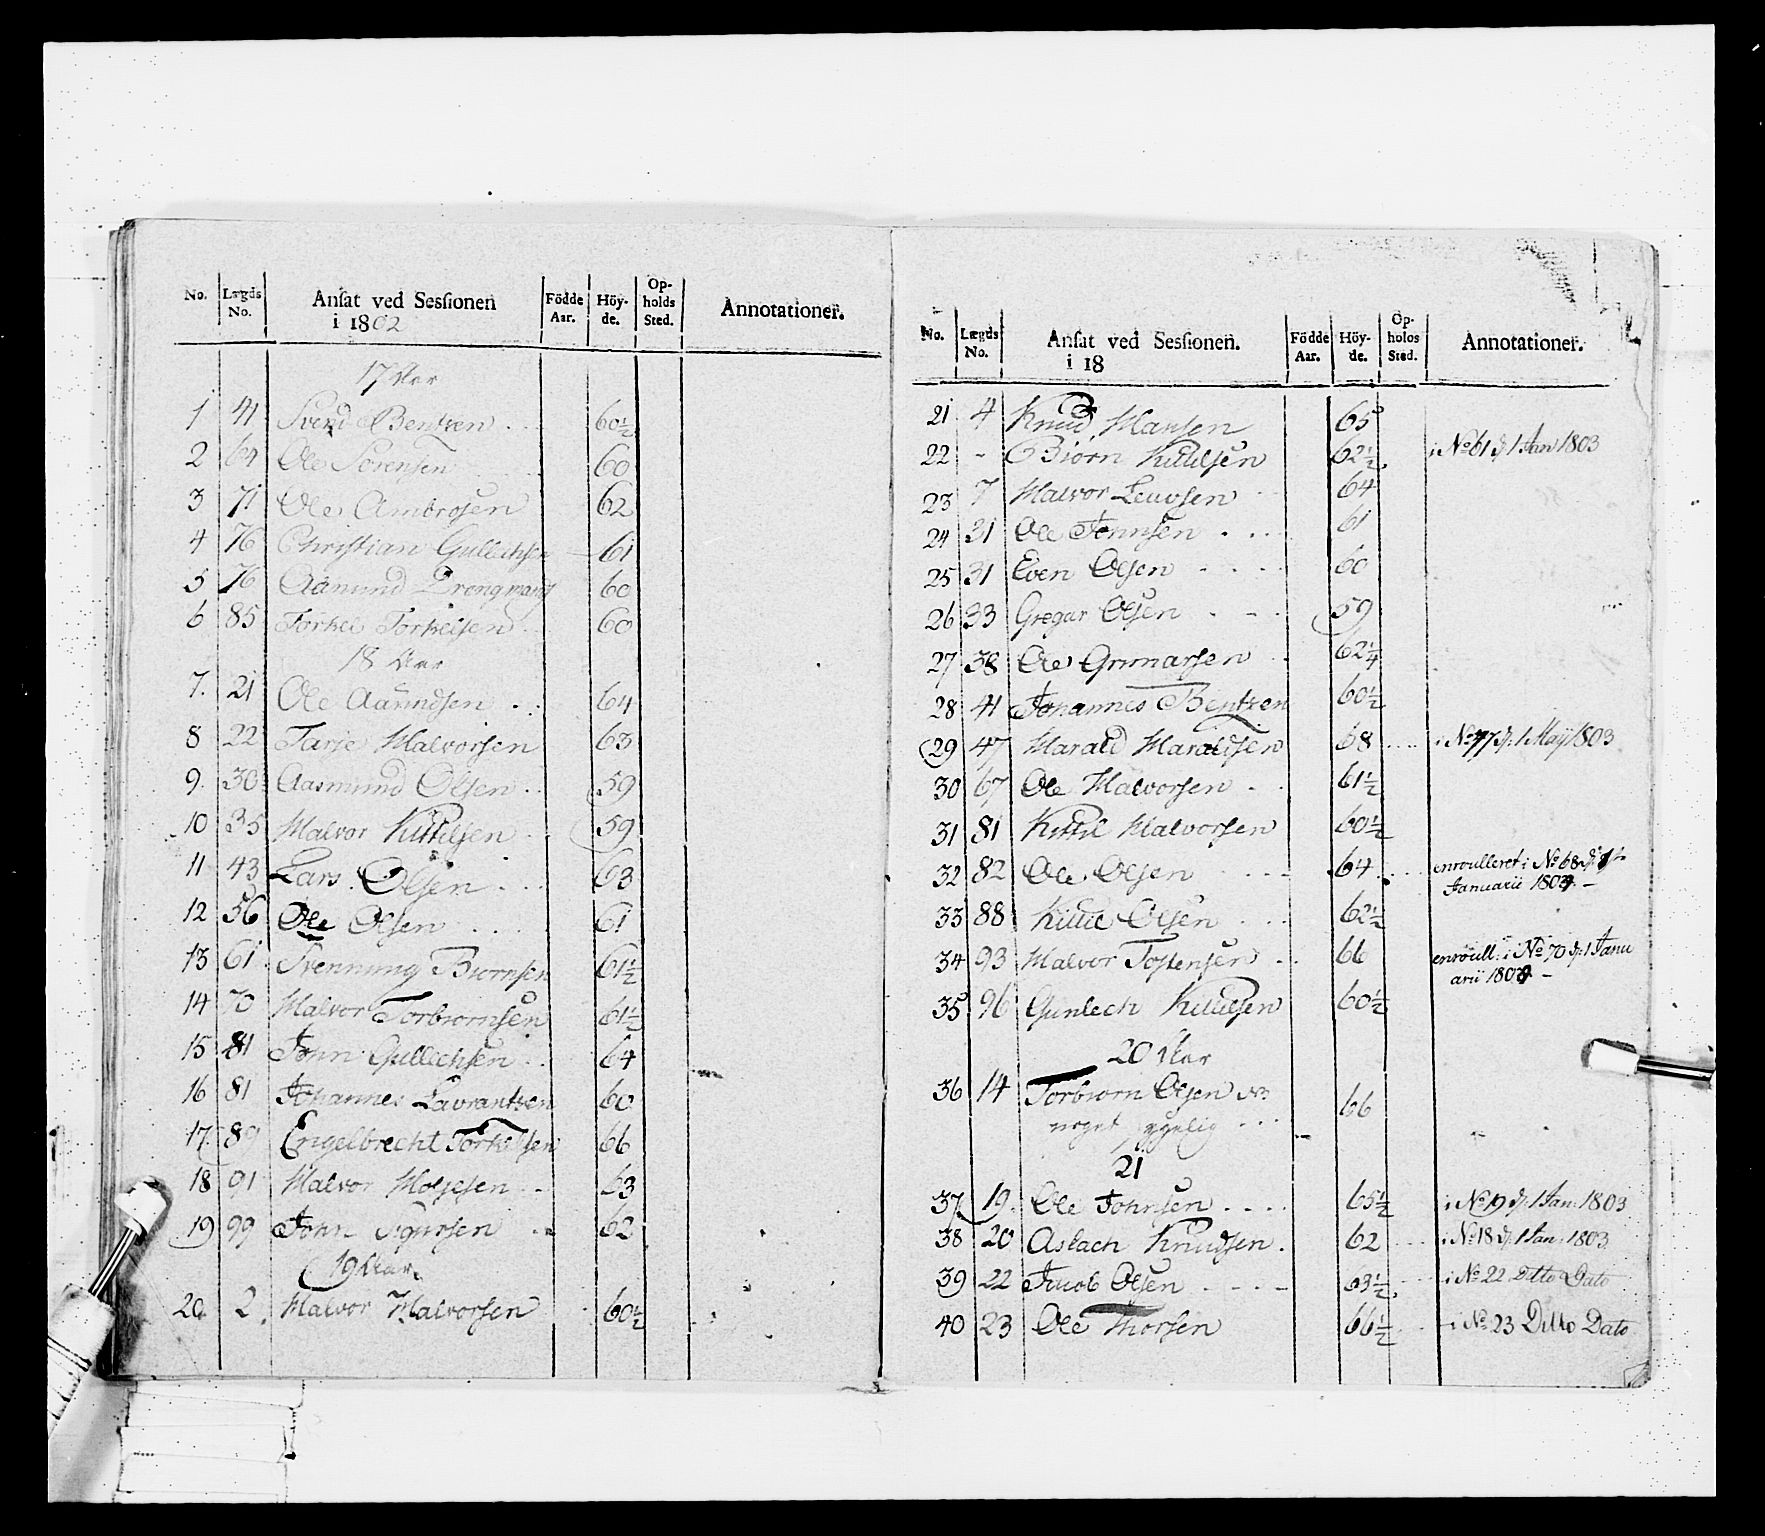 No. Lægds No. Ansat ved Sessionen i 1802 Födde Aar. Höy-de. Op-holds Sted. Annotationer.
17 Aar
1 41 Svend Bentzen 60½
2 64 Ole Sörensen 60
3 71 Ole Ambrosen 62
4 76 Christian Gullichsen 61
5 76 Aamund 60
6 85 Torkel Torkelsen 60
18 Aar
7. 21 Ole Aamundsen 64
8 22 Tarje Halvorsen 63
9. 30 Aasmund Olsen 59
10 35 Halvor Kittilsen 59
11 43 Lars Olsen 63
12 56 Ole Olsen 61
13 61 Svennung Biörnsen 61½
14 70 Halvor Torbiörnsen 61½
15 81 John Gullichsen 64
16 81 Johannes Lavrantzen 60
17 89 Engelbrecht Torkelsen 66
18 91 Halvor 63
19 99 John 62
19 Aar
20 2 Halvor Halvorsen 60½
No. Lægds No. Ansat ved Sessionen. i 18 Födde Aar. Höy-de. Op-holds Sted. Annotationer.
21 4 Knud Hansen 65
22 - Biörn Kittilsen 62½ i No 61 d: 1 Jan 1803
23 7 Halvor Leuvsen 64
24 31 Ole Johnsen 61
25 31 Even Olsen 60
26 33 Gregar Olsen 59
27 38 Ole Gunnarsen 62¼
28 41 Johannes Bentzen 60½
29 47 Harald Haraldsen 68 i No 47 d: 1 Maij 1803
30 67 Ole Halvorsen 61½
31 81 Kittil Halvorsen 60½
32 82 Ole Olsen 64 enroulleret i No 68 d: 1
Januarii 1804
33 88 Kittil Olsen 62½
34 93 Halvor Tostensen 66 enroull: i No 70 d: 1 Janu
arii 1804
35 96 Gunlech Kittilsen 60½
20 Aar
36 14 Torbiörn Olsen 66
noget
21
37 19. Ole Johnsen 65½ i No 19 d: 1 Jan. 1803
38 20 Aslach Knudsen 62 i No 18 d: 1 Jan: 1803
39 22 Jacob Olsen 63½ i No 22 Ditto Dato
40 23 Ole Thorsen 66½ i No 23 Ditto Dato